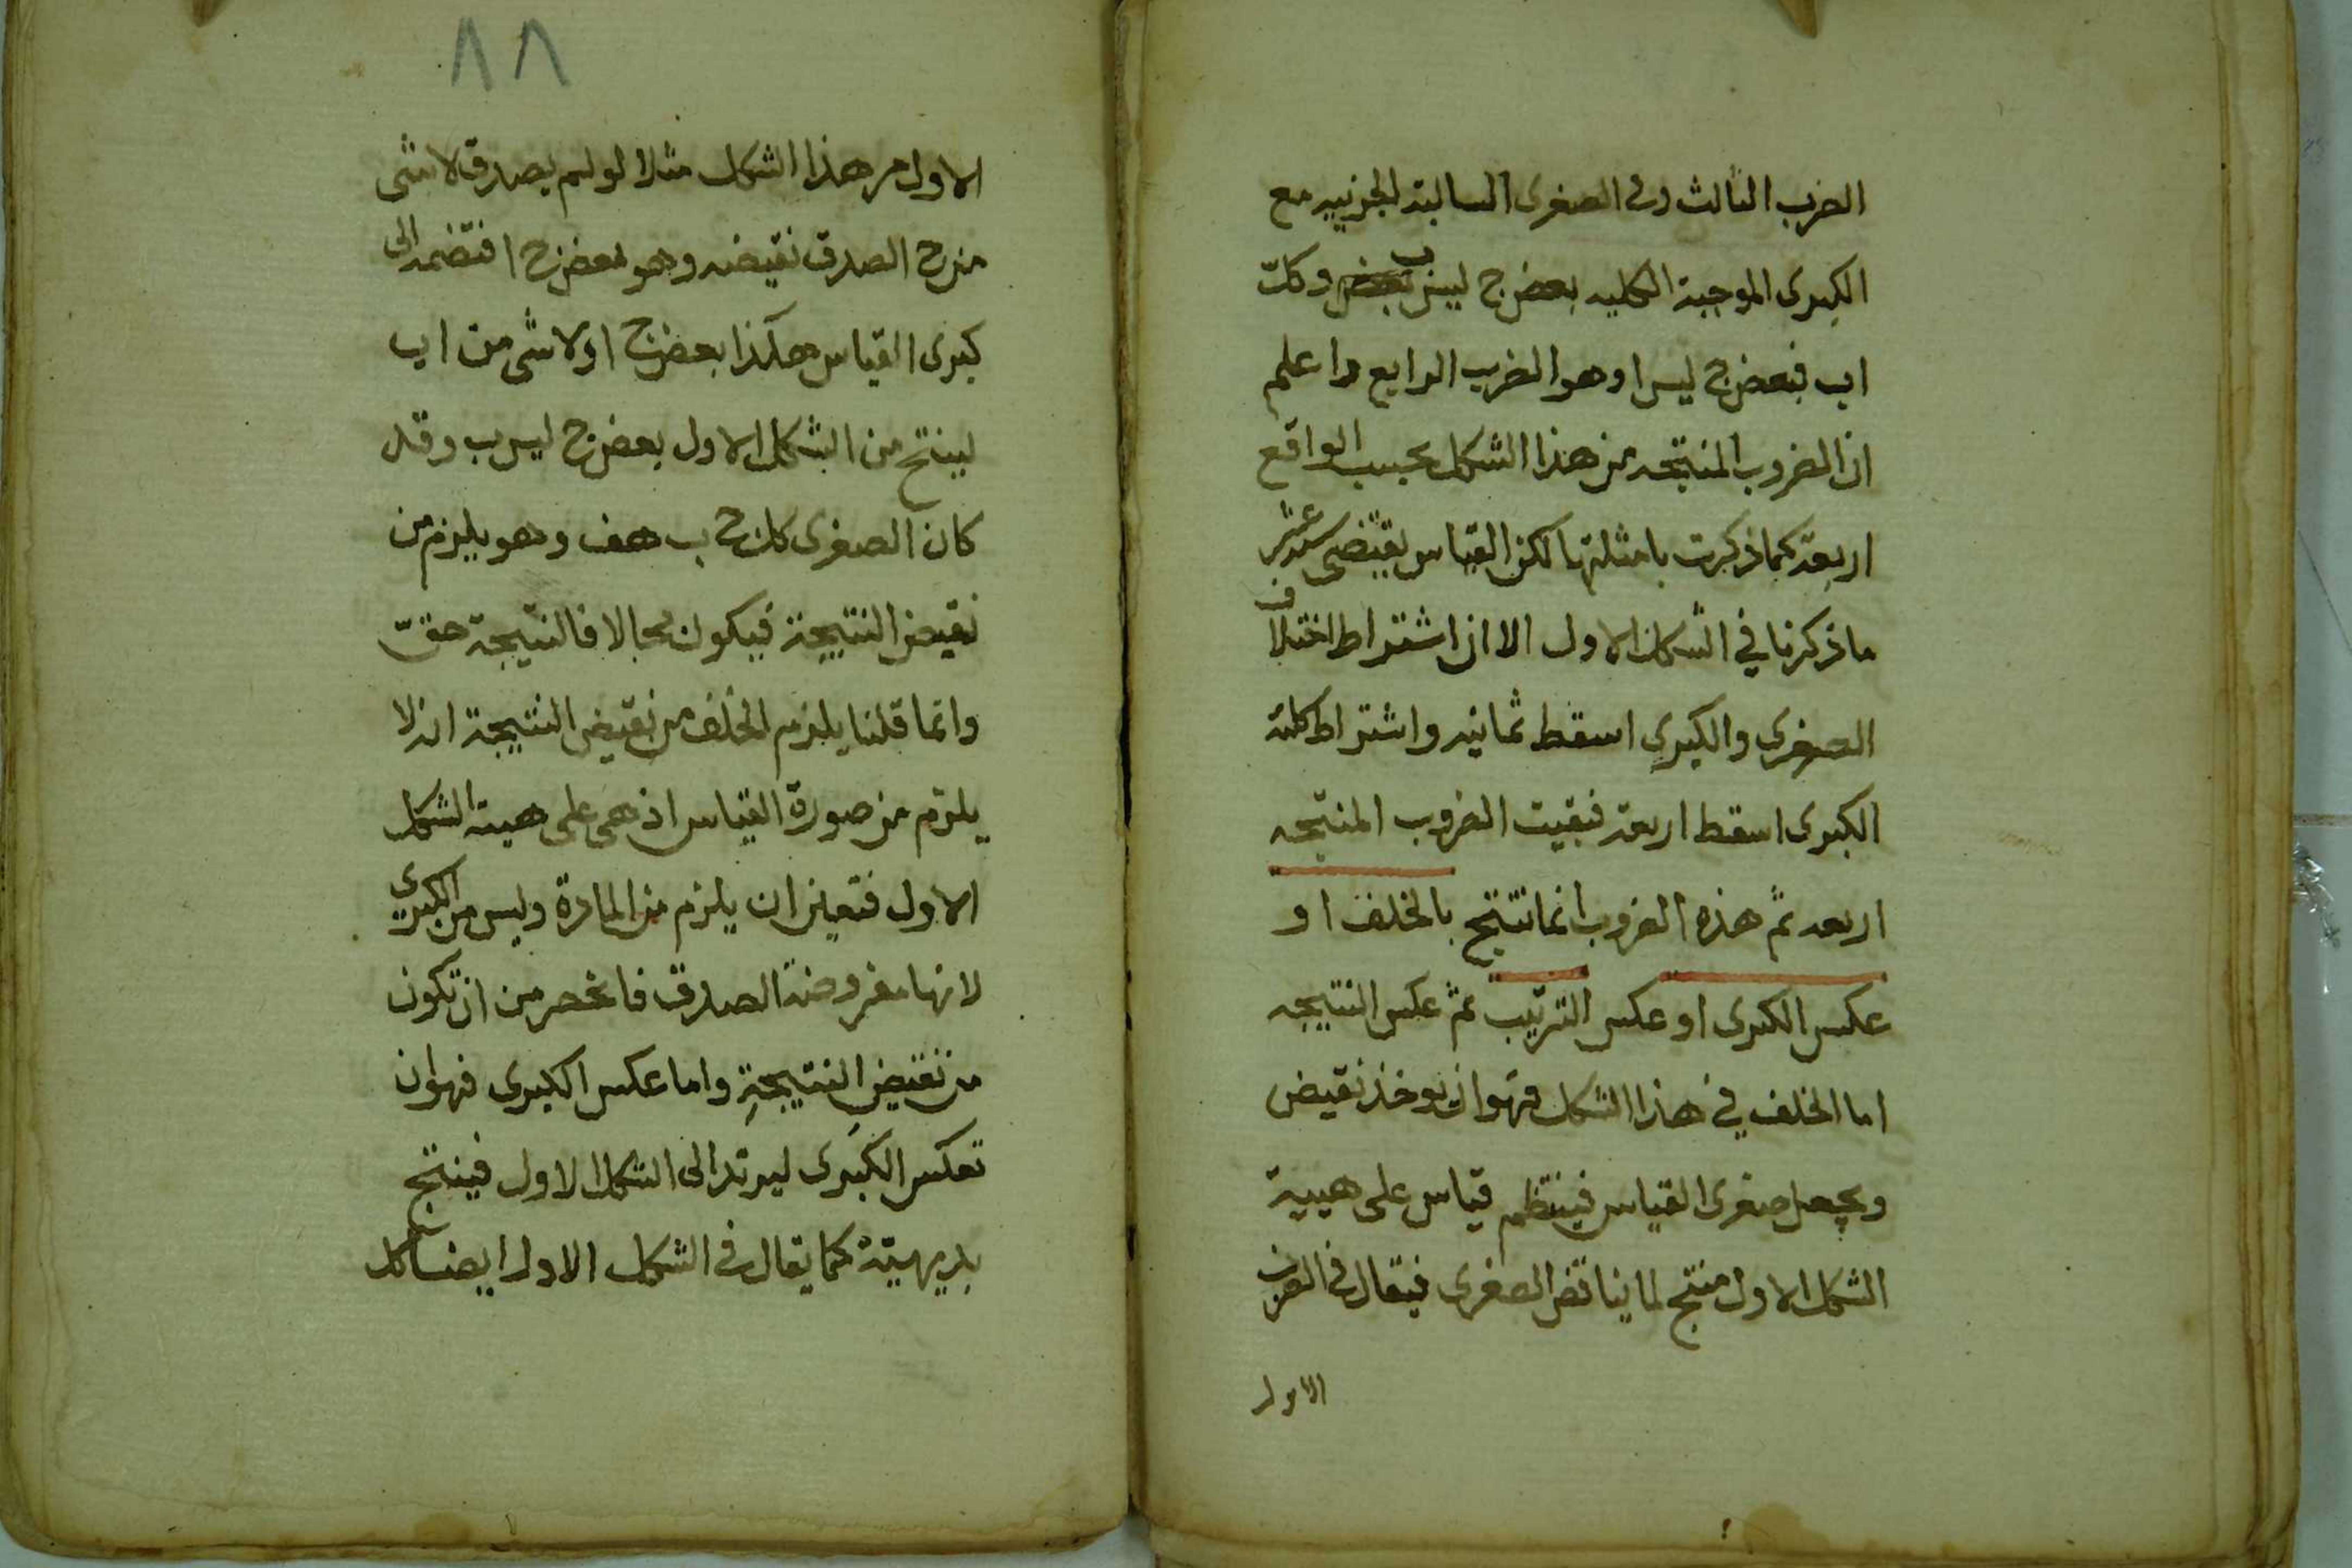 الضرب الثالث وفى الصغرى السالبة الجزئيه مع
الكبرى الموجبة الكليه بعض ج ليس ب وكلّ
اب فبعض ج ليس ا وهو الضرب الرابع واعلم
ان الضروب المنتجه من هذا الشكل بحسب الواقع
اربعة كما ذكرت بامثلتها لكن القياس يقتضى ستة عشر
ما ذكرنا في الشكل الاول الا ان اشتراط اختلاف
الصغرى والكبرى اسقط ثمانيه واشتراط كلية
الكبرى اسقط اربعة فبقيت الضروب المنتجه
اربعه ثم هذه الضروب انما تنتج بالخلف او
عكس الكبرى او عكس الترتيب ثم عكس النتيجه
اما الخلف في هذا الشكل فهو ان يوخذ نقيض
ويجعل صغرى القياس فينتظم قياس على هيية
الشكل الاول منتج لما يناقض الصغرى فيقال فى الضرب
الاول
٨٨
الاول من هذا الشكل مثلا لو لم يصدق لا شى
من ج ا لصدق نقيضه وهو بعض ج ا فتضمه الى
كبرى القياس هكذا بعض ج ا ولا شى من اب
لينتج من الشكل الاول بعض ج ليس ب وقد
كان الصغرى كل ج ب هف وهو يلزم من
نقيض النتيجة فيكون محالا فالنتيجة حقّ
وانما قلنا يلزم الخلف من نقيض النتيجة انه لا
يلزم من صورة القياس اذ هى على هيئة الشكل
الاول فتعين ان يلزم من المادة وليس من الكبرى
لانها مفروضة الصدق فانحصر من ان تكون
من نقيض النتيجةِ واما عكس الكبرى فهو ان
تعكس الكبرى ليرتد الى الشكل الاول فينتج
بديهيّة كما يقال فى الشكل الاول ايضا كل